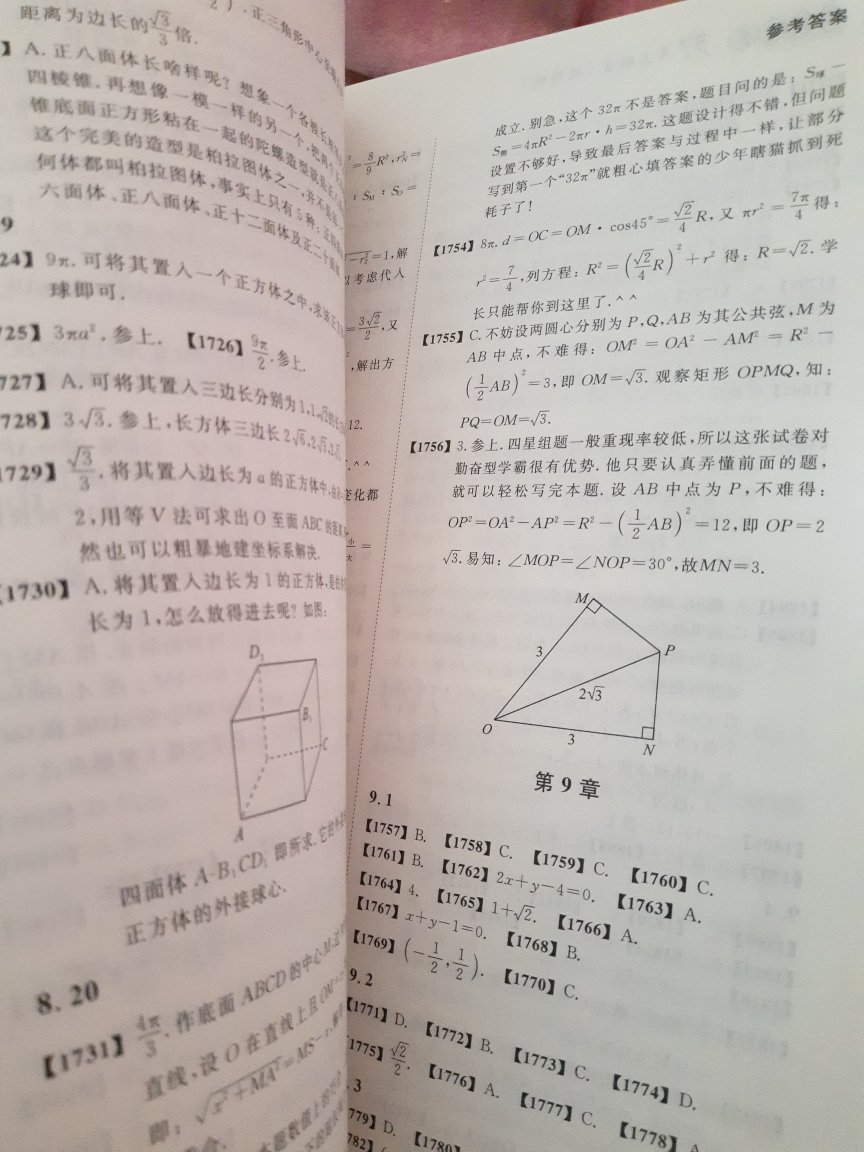 距离为边长的√3/3倍.
】A.正八面体长啥样呢?想象一个各棱长
四棱锥.再想像一模一样的另一个,把两个
锥底面正方形粘在一起的陀螺造型就是
这个完美的造型是柏拉图体之一,并不是
何体都叫柏拉图体,事实上只有5种:
六面体、正八面体、正十二面体及正二十面体
9
24】9π.可将其置入一个正方体之中,
球即可.
725】3πa².参上. 【1726】9π/2.参上.
727】A.可将其置入三边长分别为1,1,√2
728】3√3.参上,长方体三边长2√6,2√3
1729】√3/3.将其置入边长为a的正方体中,
2,用等V法可求出O至面ABC的距离
然也可以粗暴地建坐标系解决.
【1730】A.将其置入边长为1的正方体,
长为1,怎么放得进去呢?如图:
D₁
B₁
C
A
四面体A-B₁CD₁即所求.它的外接
正方体的外接球心.
8.20
【1731】4π/3.作底面ABCD的中心M,
直线,设O在直线上且OM=
即:√(x²+MA²)=MS-x,
=8/9R²,
:S_M:S_O=
=1,解
以考虑代入
=3√2/2,又
,解出方
12.
.^^
变化都
参考答案
成立.别急,这个32π不是答案,题目问的是:S球-
S侧=4πR²-2πr·h=32π.这题设计得不错,但问题
设置不够好,导致最后答案与过程中一样,让部分
写到第一个“32π”就粗心填答案的少年瞎猫抓到死
耗子了!
【1754】8π.d=OC=OM·cos45°=√2/4R,又πr²=7π/4得:
r²=7/4,列方程:R²=(√2/4R)²+r²得:R=√2.学
长只能帮你到这里了.^^
【1755】C.不妨设两圆心分别为P,Q,AB为其公共弦,M为
AB中点,不难得:OM²=OA²-AM²=R²-
(1/2AB)²=3,即OM=√3.观察矩形OPMQ,知:
PQ=OM=√3.
【1756】3.参上.四星组题一般重现率较低,所以这张试卷对
勤奋型学霸很有优势.他只要认真弄懂前面的题,
就可以轻松写完本题.设AB中点为P,不难得:
OP²=OA²-AP²=R²-(1/2AB)²=12,即OP=2
√3.易知:∠MOP=∠NOP=30°,故MN=3.
M
3
P
2√3
O
3
N
第9章
9.1
【1757】B. 【1758】C. 【1759】C. 【1760】C.
【1761】B. 【1762】2x+y-4=0. 【1763】A.
【1764】4. 【1765】1+√2. 【1766】A.
【1767】x+y-1=0. 【1768】B.
【1769】(-1/2,1/2). 【1770】C.
9.2
【1771】D. 【1772】B. 【1773】C. 【1774】D.
1775】√2/2. 【1776】A. 【1777】C. 【1778】A
.3
779】D. 【1780】
782】